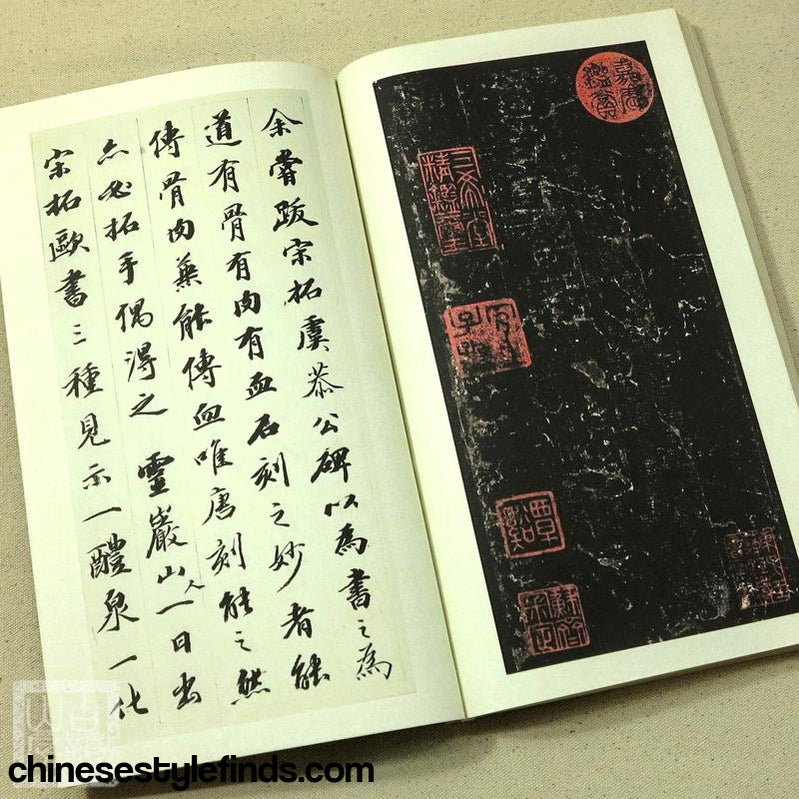 余嘗跋宋拓虞恭公碑以為書之為
道有骨有肉有血石刻之妙者能
傳骨肉無能傳血唯唐刻能之然
亦必拓手偶得之靈巖山人一日出
宋拓歐書三種見示一醴泉一化
嘉慶鑑賞
三希堂精鑑璽
宜子孫
chinesestylefinds.com